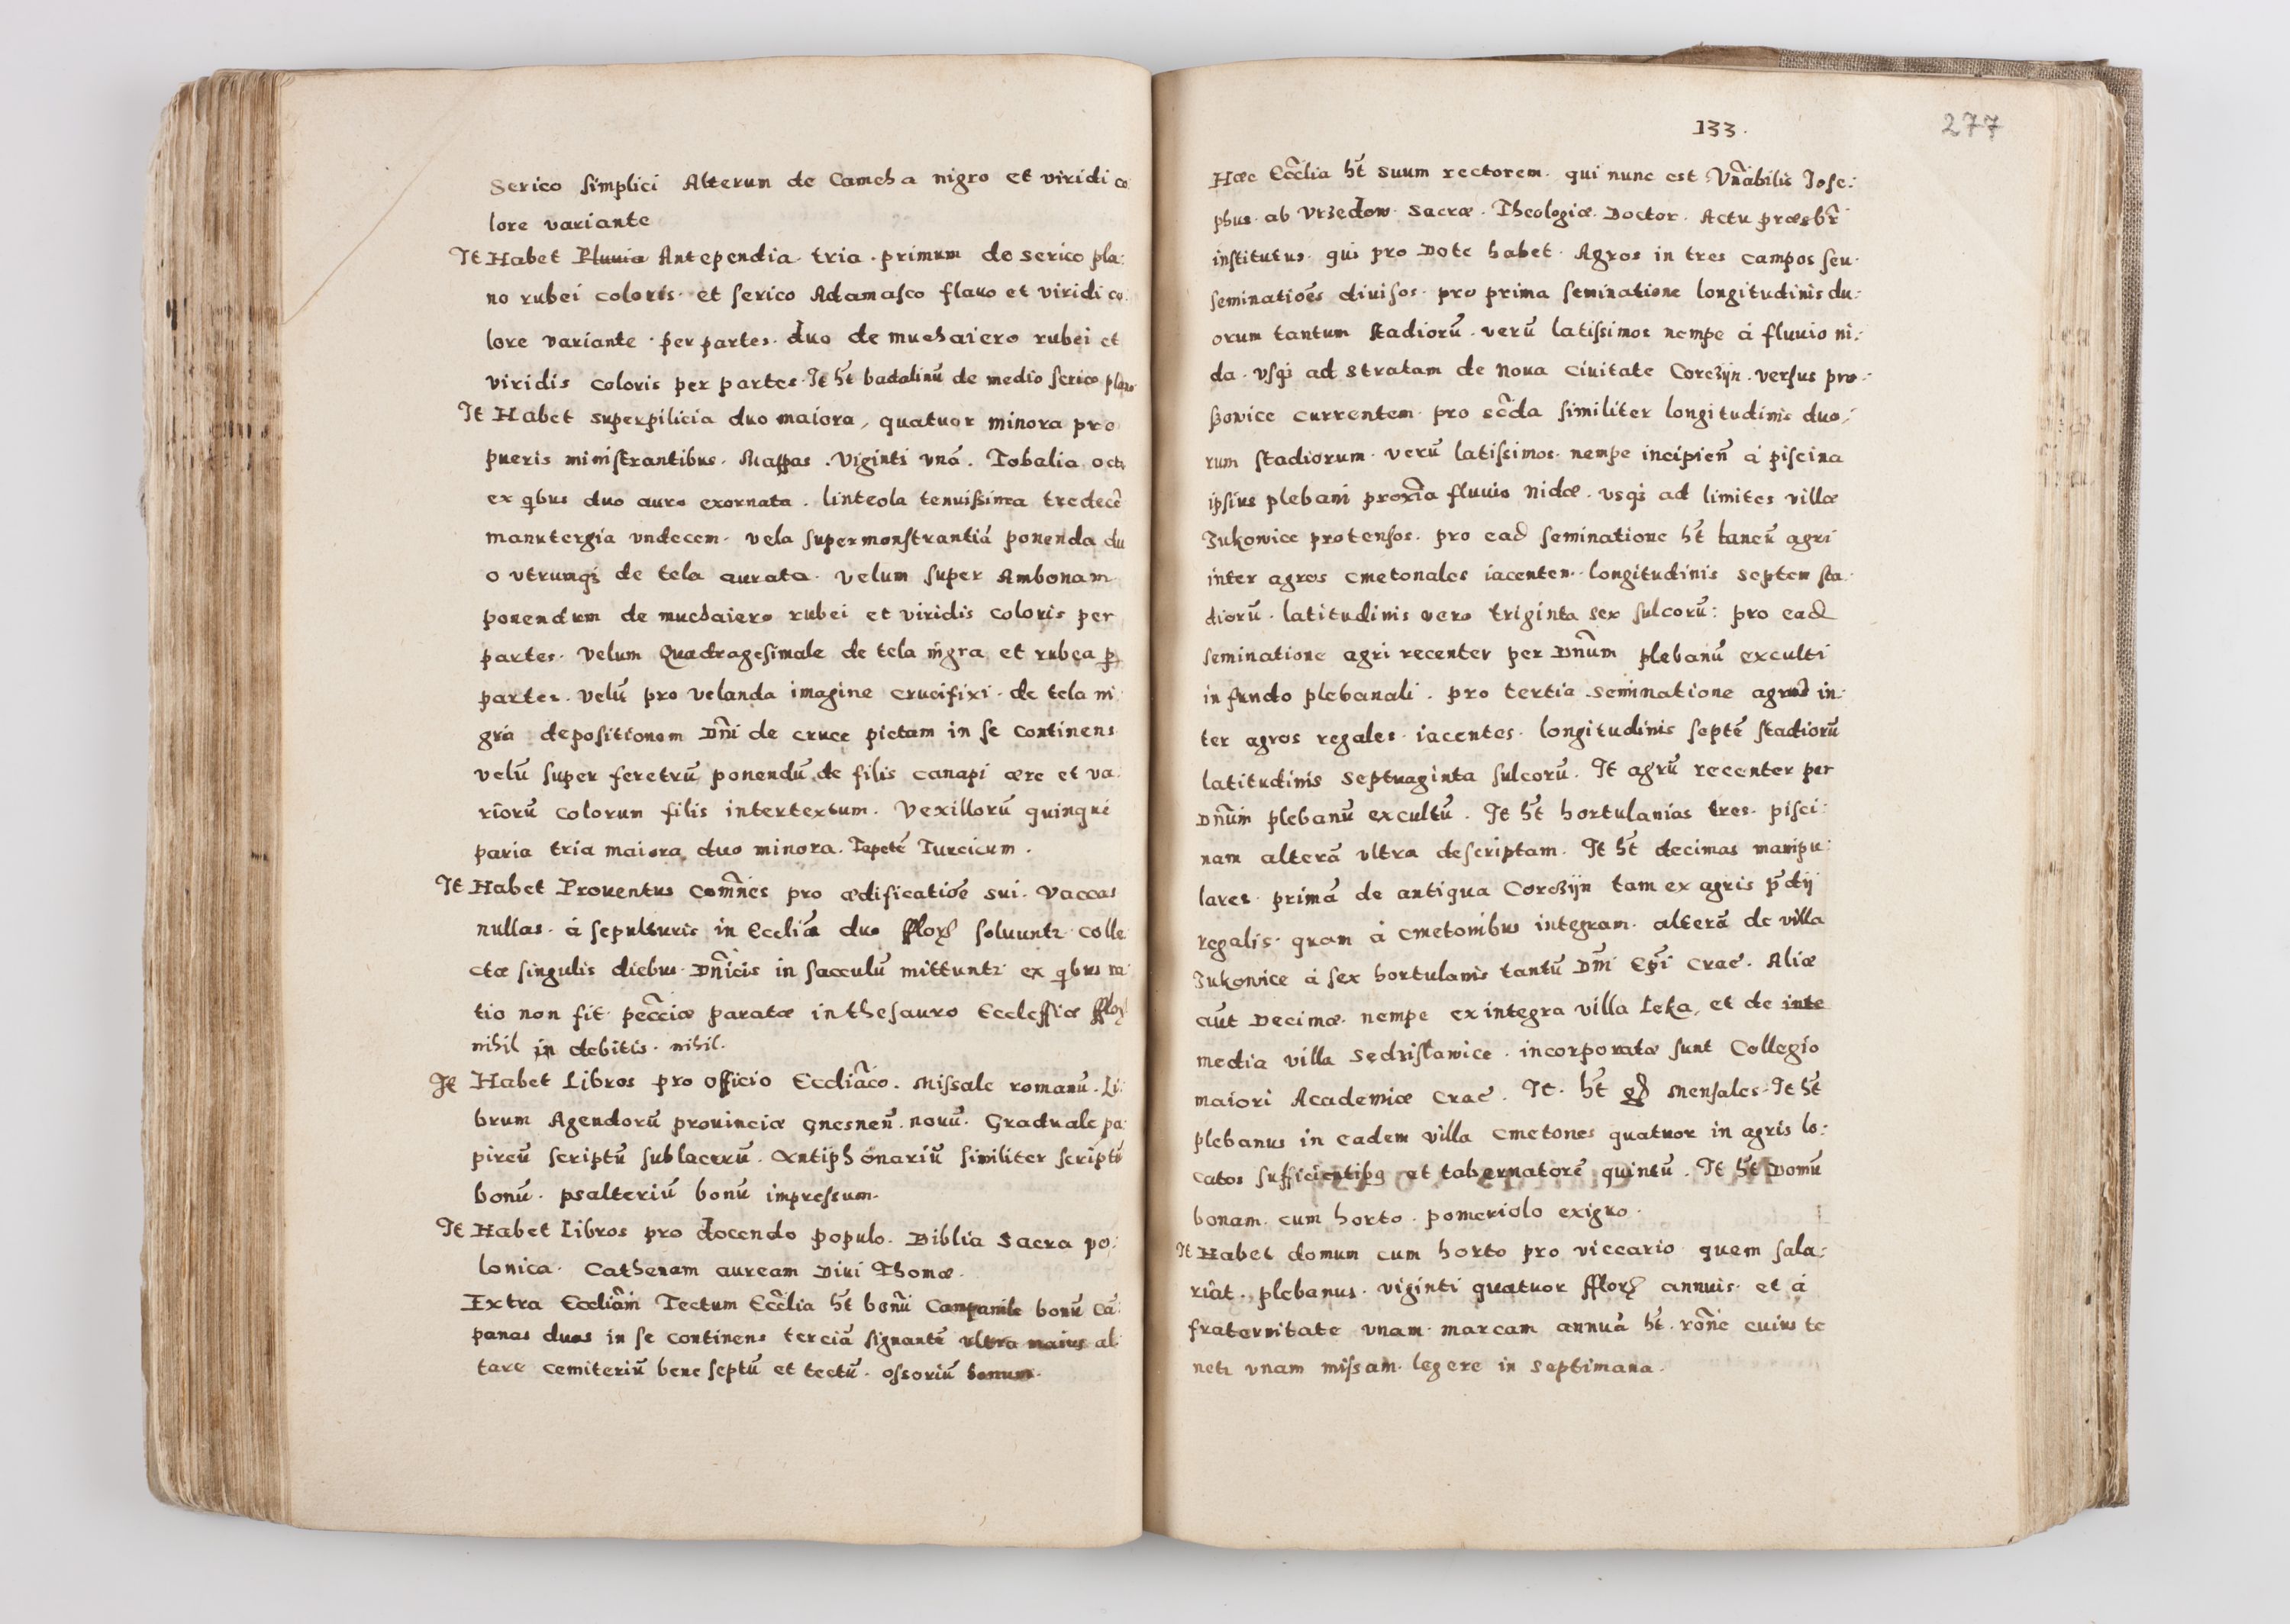 Serico simplici Alterum de Cameha nigro et viridi co
lore variante
It Habet Pluuia Antependia tria . primum de serico pla:
no rubei coloris et serico Adamasco flauo et viridi co:
lore variante per partes. duo de muchaiero rubei et
viridis coloris per partes. It ht badalinū de medio serico plano
It Habet superpilicia duo maiora, quatuor minora pro
pueris ministrantibus. Mappas . viginti vná . Tobalia octo
ex qbus duo auro exornata . linteola tenuissima tredecē
manutergia vndecem. vela supermonstrantiā ponenda du
o vtrunqз de tela aurata. velum super Ambonam
ponendum de muchaiero rubei et viridis coloris per
partes. velum Quadragesimale de tela nigra et rubea p
partes. velū pro velanda imagine crucifixi. de tela ni:
gra depositionem Dñi de cruce pictam in se continens
velū super feretrū ponendū de filis canapi ære et va:
riorū colorum filis intertextum. Vexillorū quinque
paria tria maiora duo minora. Tapetē Turcicum .
It Habet Prouentus com̃nes pro ædificatiōe sui. vaccas
nullas. á sepulturis in Eccliā duo fflorꝫ soluuntr. colle
ctæ singulis diebus Dñicis in sacculū mittuntr ex qbus ra:
tio non fit pecc̃iæ paratæ in thesauro Ecclesiæ fflorꝫ
nihil in debitis. nihil.
It Habet Libros pro officio Eccliāco. Missale romanū. Li:
brum Agendorū prouinciæ Gnesneñ. nouū. Graduale pa:
pireū scriptū sublacerū. Antiphonariū similiter scriptū
bonū. psalteriū bonū impressum.
It Habet Libros pro docendo populo. Biblia Sacra po:
lonica. Cathenam auream Diui Thomæ.
Extra Eccliām Tectum Ecc̃lia ht bonū Campanile bonū Cā:
panas duas in se continens terciā signantē ultra maius al:
tare cemiteriū bene septū et tectū. ossoriū bonum.
133.
277
Hæc Ecc̃lia ht suum rectorem. qui nunc est Vñabilis Jose:
phus. ab Vrzedow. Sacræ. Theologiæ. Doctor. Actu præsbr̃
institutus. qui pro Dote habet. Agros in tres campos seu.
seminatiōes diuisos. pro prima seminatione longitudinis du:
orum tantum stadiorū. verū latissimos nempe á fluuio ni:
da. vsqз ad stratam de noua ciuitate Corczÿn. versus pro:
szowice currentem. pro sc̃da similiter longitudinis duo:
rum stadiorum. verū latissimos. nempe incipieñ á piscina
ipsius plebani prox̃ia fluuio Nidæ. vsqз ad limites villæ
Jukowice protensos. pro ead seminatione ht laneū agri
inter agros cmetonales iacentem. longitudinis septem sta:
diorū. latitudinis vero triginta sex sulcorū: pro ead
seminatione agri recenter per Dñum plebanū exculti
in fundo plebanali. pro tertia seminatione agros in:
ter agros regales. iacentes. longitudinis septē stadiorū
latitudinis septuaginta sulcorū. It agrū recenter per
Dñum plebanū excultū. It ht hortulanias tres. pisci:
nam alterā vltra descriptam. It ht decimas manipu:
lares. primā de antiqua Corczÿn tam ex agris p̃dij
regalis. quam á cmetonibus integram. alterā de villa
Jukowice á sex hortulanis tantū Dñi Ep̃i Crac̄. Aliæ
aūt Decimæ. nempe ex integra villa Łęka, et de inte
media villa Sędzisławice. incorporatæ sunt Collegio
maiori Academiæ Crac̄. It. ht Mensales. It ht
plebanus in eadem villa cmetones quatuor in agris lo:
catos sufficientibꝯ et tabernatorē quintū. It ht Domū
bonam. cum horto. pomeriolo exiguo.
It Habet domum cum horto pro viccario quem sala:
riāt. plebanus. viginti quatuor fflorꝫ annuis. et á
fraternitate vnam. marcam annuā ht. rōne cuius te
netr vnam missam. legere in septimana.